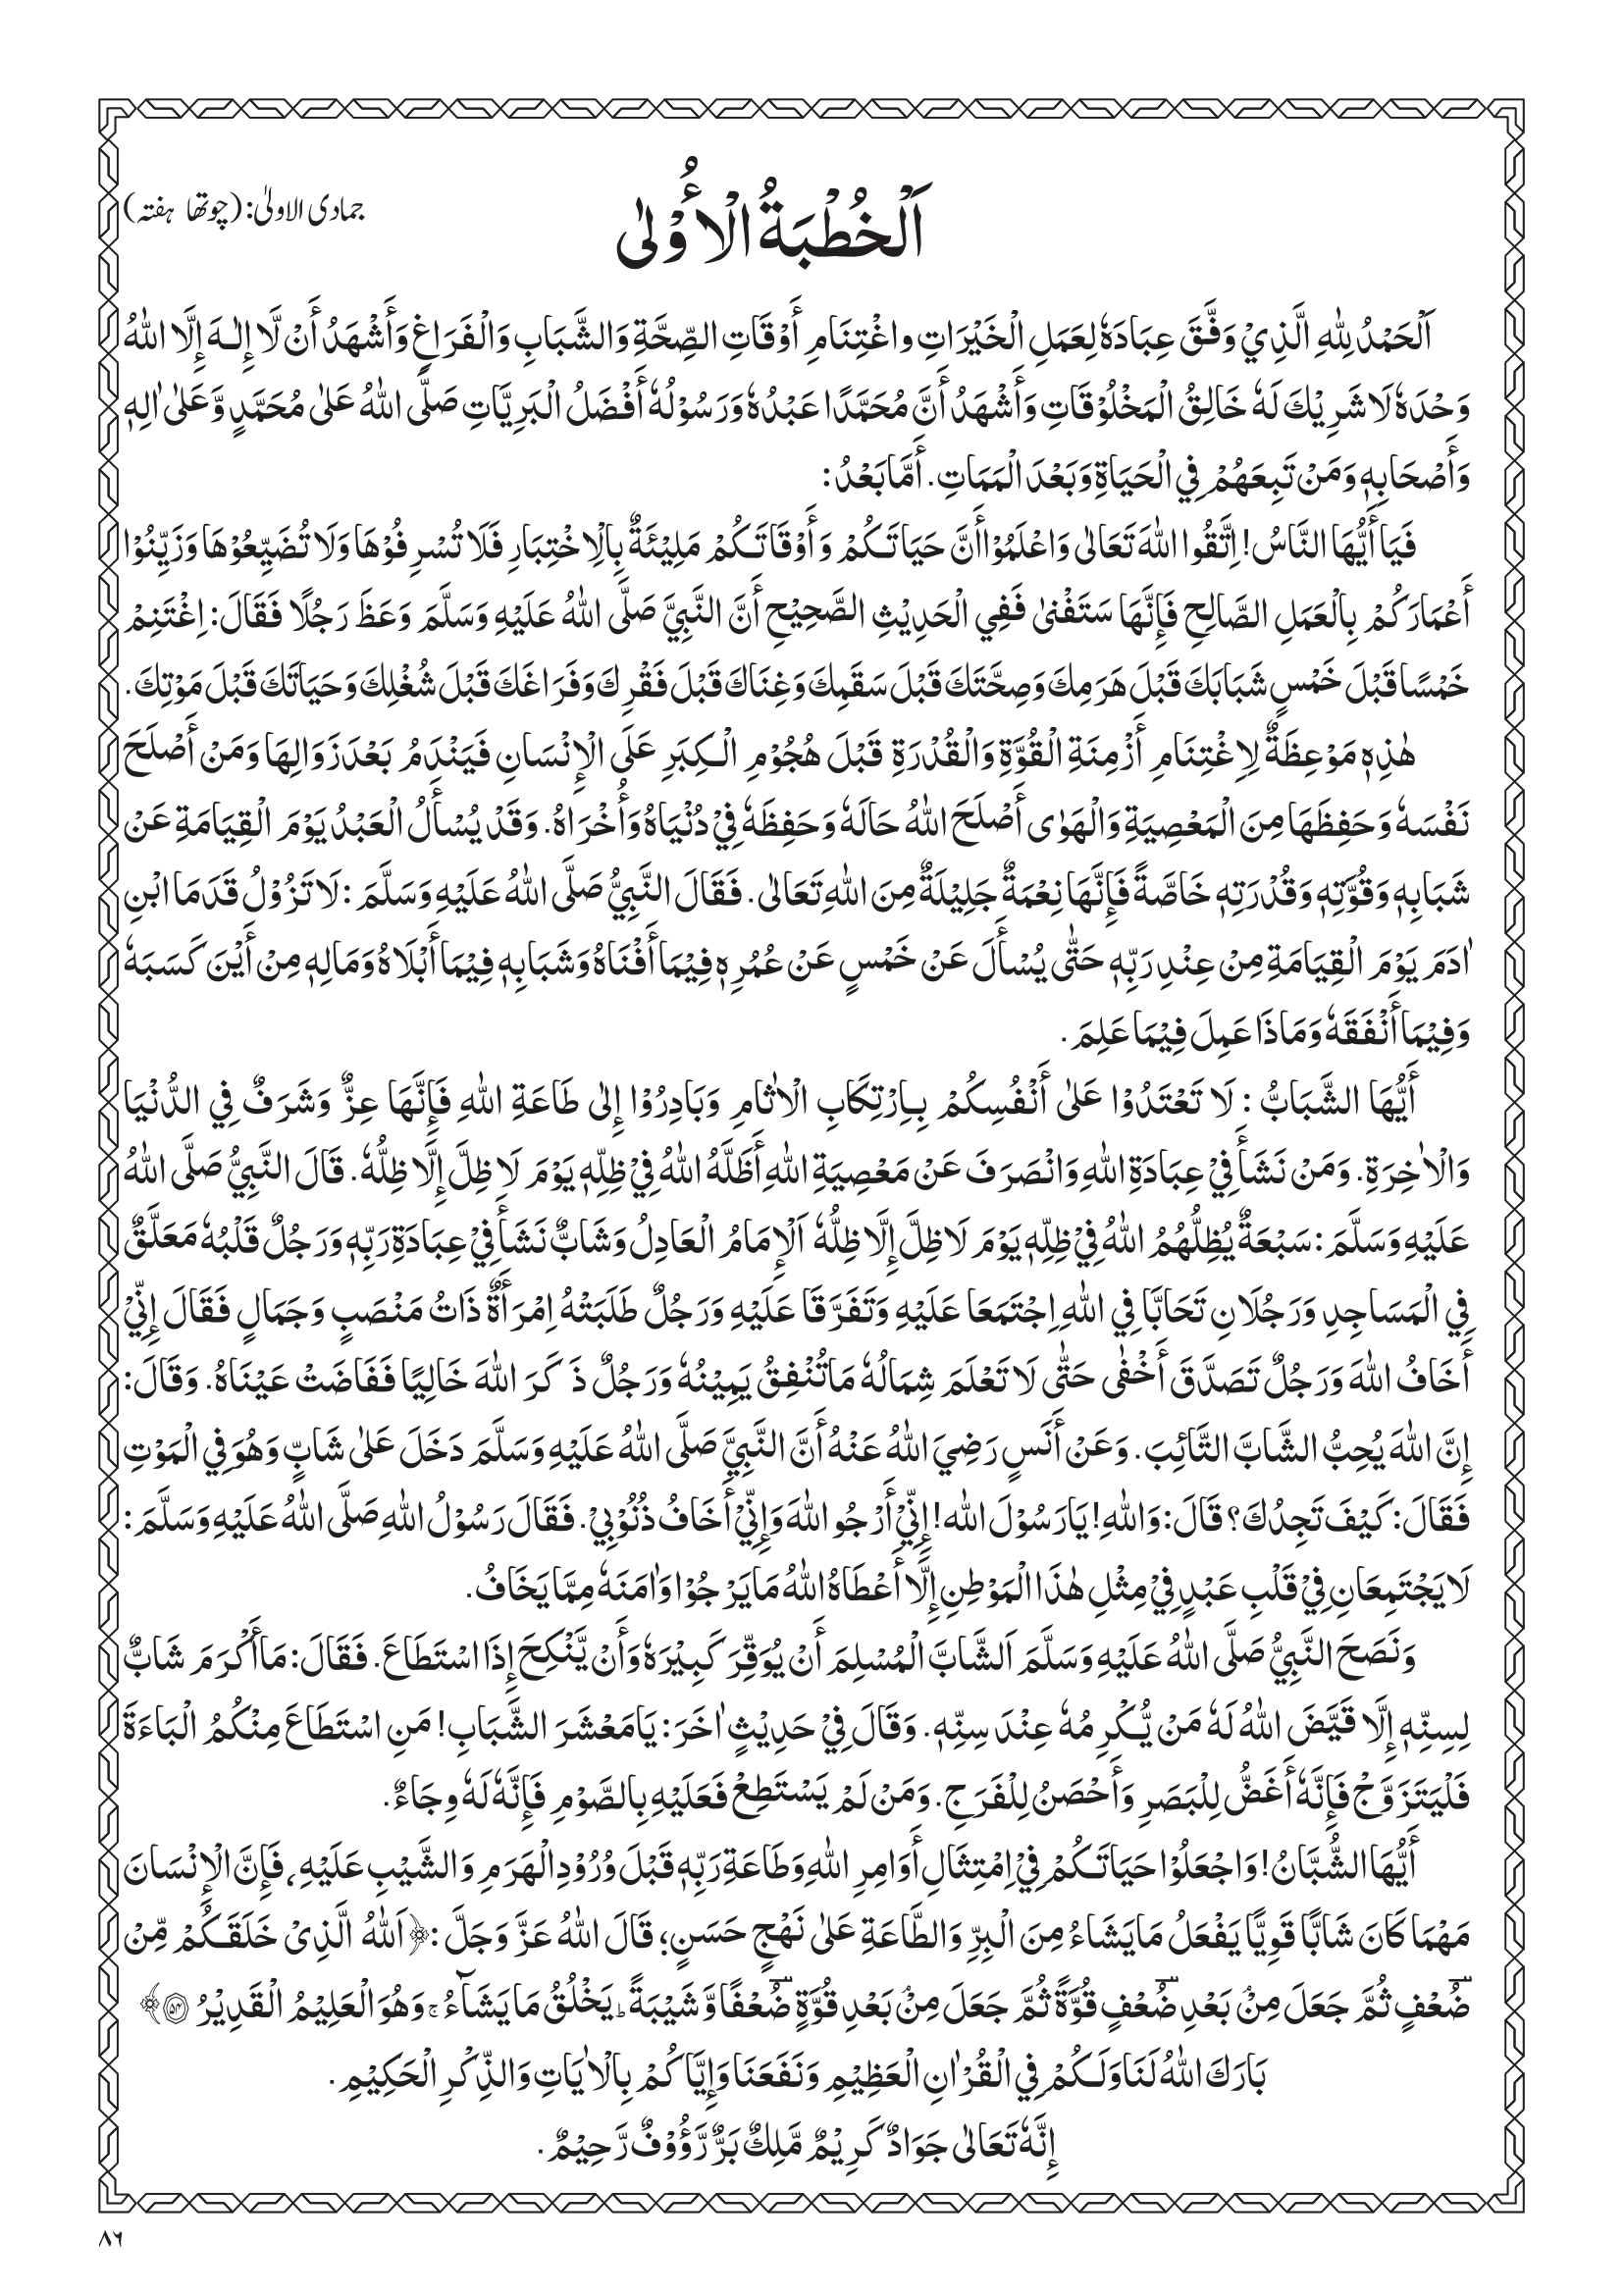 جمادی الاولیٰ: (چوتھا ہفتہ)
اَلْخُطْبَةُ الْأُوْلٰى
اَلْحَمْدُ لِلّٰهِ الَّذِيْ وَفَّقَ عِبَادَهٗ لِعَمَلِ الْخَيْرَاتِ واغْتِنَامِ أَوْقَاتِ الصِّحَّةِ وَالشَّبَابِ وَالْفَرَاغِ وَأَشْهَدُ أَنْ لَّا إِلٰـهَ إِلَّا اللّٰهُ
وَحْدَهٗ لَا شَرِيْكَ لَهٗ خَالِقُ الْمَخْلُوْقَاتِ وَأَشْهَدُ أَنَّ مُحَمَّدًا عَبْدُهٗ وَرَسُوْلُهٗ أَفْضَلُ الْبَرِيَّاتِ صَلَّى اللّٰهُ عَلٰى مُحَمَّدٍ وَّعَلٰى اٰلِهٖ
وَأَصْحَابِهٖ وَمَنْ تَبِعَهُمْ فِي الْحَيَاةِ وَبَعْدَ الْمَمَاتِ. أَمَّا بَعْدُ:
فَيَا أَيُّهَا النَّاسُ! اِتَّقُوا اللّٰهَ تَعَالٰى وَاعْلَمُوْا أَنَّ حَيَاتَـكُمْ وَأَوْقَاتَـكُمْ مَلِيْئَةٌ بِالْاِخْتِبَارِ فَلَا تُسْرِفُوْهَا وَلَا تُضَيِّعُوْهَا وَزَيِّنُوْا
أَعْمَارَكُمْ بِالْعَمَلِ الصَّالِحِ فَإِنَّهَا سَتَفْنٰى فَفِي الْحَدِيْثِ الصَّحِيْحِ أَنَّ النَّبِيَّ صَلَّى اللّٰهُ عَلَيْهِ وَسَلَّمَ وَعَظَ رَجُلًا فَقَالَ: اِغْتَنِمْ
خَمْسًا قَبْلَ خَمْسٍ شَبَابَكَ قَبْلَ هَرَمِكَ وَصِحَّتَكَ قَبْلَ سَقَمِكَ وَغِنَاكَ قَبْلَ فَقْرِكَ وَفَرَاغَكَ قَبْلَ شُغْلِكَ وَحَيَاتَكَ قَبْلَ مَوْتِكَ.
هٰذِهٖ مَوْعِظَةٌ لِاِغْتِنَامِ أَزْمِنَةِ الْقُوَّةِ وَالْقُدْرَةِ قَبْلَ هُجُوْمِ الْـكِبَرِ عَلَى الْإِنْسَانِ فَيَنْدَمُ بَعْدَ زَوَالِهَا وَمَنْ أَصْلَحَ
نَفْسَهٗ وَحَفِظَهَا مِنَ الْمَعْصِيَةِ وَالْهَوٰى أَصْلَحَ اللّٰهُ حَالَهٗ وَحَفِظَهٗ فِيْ دُنْيَاهُ وَأُخْرَاهُ. وَقَدْ يُسْأَلُ الْعَبْدُ يَوْمَ الْقِيَامَةِ عَنْ
شَبَابِهٖ وَقُوَّتِهٖ وَقُدْرَتِهٖ خَاصَّةً فَإِنَّهَا نِعْمَةٌ جَلِيْلَةٌ مِنَ اللّٰهِ تَعَالٰى. فَقَالَ النَّبِيُّ صَلَّى اللّٰهُ عَلَيْهِ وَسَلَّمَ: لَا تَزُوْلُ قَدَمَا ابْنِ
اٰدَمَ يَوْمَ الْقِيَامَةِ مِنْ عِنْدِ رَبِّهٖ حَتّٰى يُسْأَلَ عَنْ خَمْسٍ عَنْ عُمُرِهٖ فِيْمَا أَفْنَاهُ وَشَبَابِهٖ فِيْمَا أَبْلَاهُ وَمَالِهٖ مِنْ أَيْنَ كَسَبَهٗ
وَفِيْمَا أَنْفَقَهٗ وَمَاذَا عَمِلَ فِيْمَا عَلِمَ.
أَيُّهَا الشَّبَابُّ: لَا تَعْتَدُوْا عَلٰى أَنْفُسِكُمْ بِـاِرْتِكَابِ الْاٰثَامِ وَبَادِرُوْا إِلٰى طَاعَةِ اللّٰهِ فَإِنَّهَا عِزٌّ وَشَرَفٌ فِي الدُّنْيَا
وَالْاٰخِرَةِ. وَمَنْ نَشَأَ فِيْ عِبَادَةِ اللّٰهِ وَانْصَرَفَ عَنْ مَعْصِيَةِ اللّٰهِ أَظَلَّهُ اللّٰهُ فِيْ ظِلِّهٖ يَوْمَ لَا ظِلَّ إِلَّا ظِلُّهٗ. قَالَ النَّبِيُّ صَلَّى اللّٰهُ
عَلَيْهِ وَسَلَّمَ: سَبْعَةٌ يُظِلُّهُمُ اللّٰهُ فِيْ ظِلِّهٖ يَوْمَ لَا ظِلَّ إِلَّا ظِلُّهٗ اَلْإِمَامُ الْعَادِلُ وَشَابٌّ نَشَأَ فِيْ عِبَادَةِ رَبِّهٖ وَرَجُلٌ قَلْبُهٗ مَعَلَّقٌ
فِي الْمَسَاجِدِ وَرَجُلَانِ تَحَابَّا فِي اللّٰهِ اِجْتَمَعَا عَلَيْهِ وَتَفَرَّقَا عَلَيْهِ وَرَجُلٌ طَلَبَتْهُ اِمْرَأَةٌ ذَاتُ مَنْصَبٍ وَجَمَالٍ فَقَالَ إِنِّيْ
أَخَافُ اللّٰهَ وَرَجُلٌ تَصَدَّقَ أَخْفٰى حَتّٰى لَا تَعْلَمَ شِمَالُهٗ مَا تُنْفِقُ يَمِيْنُهٗ وَرَجُلٌ ذَكَرَ اللّٰهَ خَالِيًا فَفَاضَتْ عَيْنَاهُ. وَقَالَ:
إِنَّ اللّٰهَ يُحِبُّ الشَّابَّ التَّائِبَ. وَعَنْ أَنَسٍ رَضِيَ اللّٰهُ عَنْهُ أَنَّ النَّبِيَّ صَلَّى اللّٰهُ عَلَيْهِ وَسَلَّمَ دَخَلَ عَلٰى شَابٍّ وَهُوَ فِي الْمَوْتِ
فَقَالَ: كَيْفَ تَجِدُكَ؟ قَالَ: وَاللّٰهِ! يَارَسُوْلَ اللّٰه! إِنِّيْ أَرْجُو اللّٰهَ وَإِنِّيْ أَخَافُ ذُنُوْبِيْ. فَقَالَ رَسُوْلُ اللّٰهِ صَلَّى اللّٰهُ عَلَيْهِ وَسَلَّمَ:
لَا يَجْتَمِعَانِ فِيْ قَلْبِ عَبْدٍ فِيْ مِثْلِ هٰذَا الْمَوْطِنِ إِلَّا أَعْطَاهُ اللّٰهُ مَا يَرْجُوْا وَاٰمَنَهٗ مِمَّا يَخَافُ.
وَنَصَحَ النَّبِيُّ صَلَّى اللّٰهُ عَلَيْهِ وَسَلَّمَ اَلشَّابَّ الْمُسْلِمَ أَنْ يُوَقِّرَ كَبِيْرَهٗ وَأَنْ يَّنْكِحَ إِذَا اسْتَطَاعَ. فَقَالَ: مَا أَكْرَمَ شَابٌّ
لِسِنِّهٖ إِلَّا قَيَّضَ اللّٰهُ لَهٗ مَنْ يُّكْرِمُهٗ عِنْدَ سِنِّهٖ. وَقَالَ فِيْ حَدِيْثٍ اٰخَرَ: يَا مَعْشَرَ الشَّبَابِ! مَنِ اسْتَطَاعَ مِنْكُمُ الْبَاءَةَ
فَلْيَتَزَوَّجْ فَإِنَّهٗ أَغَضُّ لِلْبَصَرِ وَأَحْصَنُ لِلْفَرَجِ. وَمَنْ لَمْ يَسْتَطِعْ فَعَلَيْهِ بِالصَّوْمِ فَإِنَّهٗ لَهٗ وِجَاءٌ.
أَيُّهَا الشُّبَّانُ! وَاجْعَلُوْا حَيَاتَـكُمْ فِيْ اِمْتِثَالِ أَوَامِرِ اللّٰهِ وَطَاعَةِ رَبِّهٖ قَبْلَ وُرُوْدِ الْهَرَمِ وَالشَّيْبِ عَلَيْهِ، فَإِنَّ الْإِنْسَانَ
مَهْمَا كَانَ شَابًّا قَوِيًّا يَفْعَلُ مَا يَشَاءُ مِنَ الْبِرِّ وَالطَّاعَةِ عَلٰى نَهْجٍ حَسَنٍ؛ قَالَ اللّٰهُ عَزَّ وَجَلَّ: ﴿اَللّٰهُ الَّذِىْ خَلَقَـكُمْ مِّنْ
ضُعْفٍ ثُمَّ جَعَلَ مِنْۢ بَعْدِ ضُعْفٍ قُوَّةً ثُمَّ جَعَلَ مِنْۢ بَعْدِ قُوَّةٍ ضُعْفًا وَّشَيْبَةً ؕ يَخْلُقُ مَا يَشَآءُ ۚ وَهُوَ الْعَلِيْمُ الْقَدِيْرُ ۝۵۴﴾
بَارَكَ اللّٰهُ لَنَا وَلَـكُمْ فِي الْقُرْاٰنِ الْعَظِيْمِ وَنَفَعَنَا وَإِيَّاكُمْ بِالْاٰيَاتِ وَالذِّكْرِ الْحَكِيْمِ.
إِنَّهٗ تَعَالٰى جَوَادٌ كَرِيْمٌ مَّلِكٌ بَرٌّ رَّؤُوْفٌ رَّحِيْمٌ.
۸۶